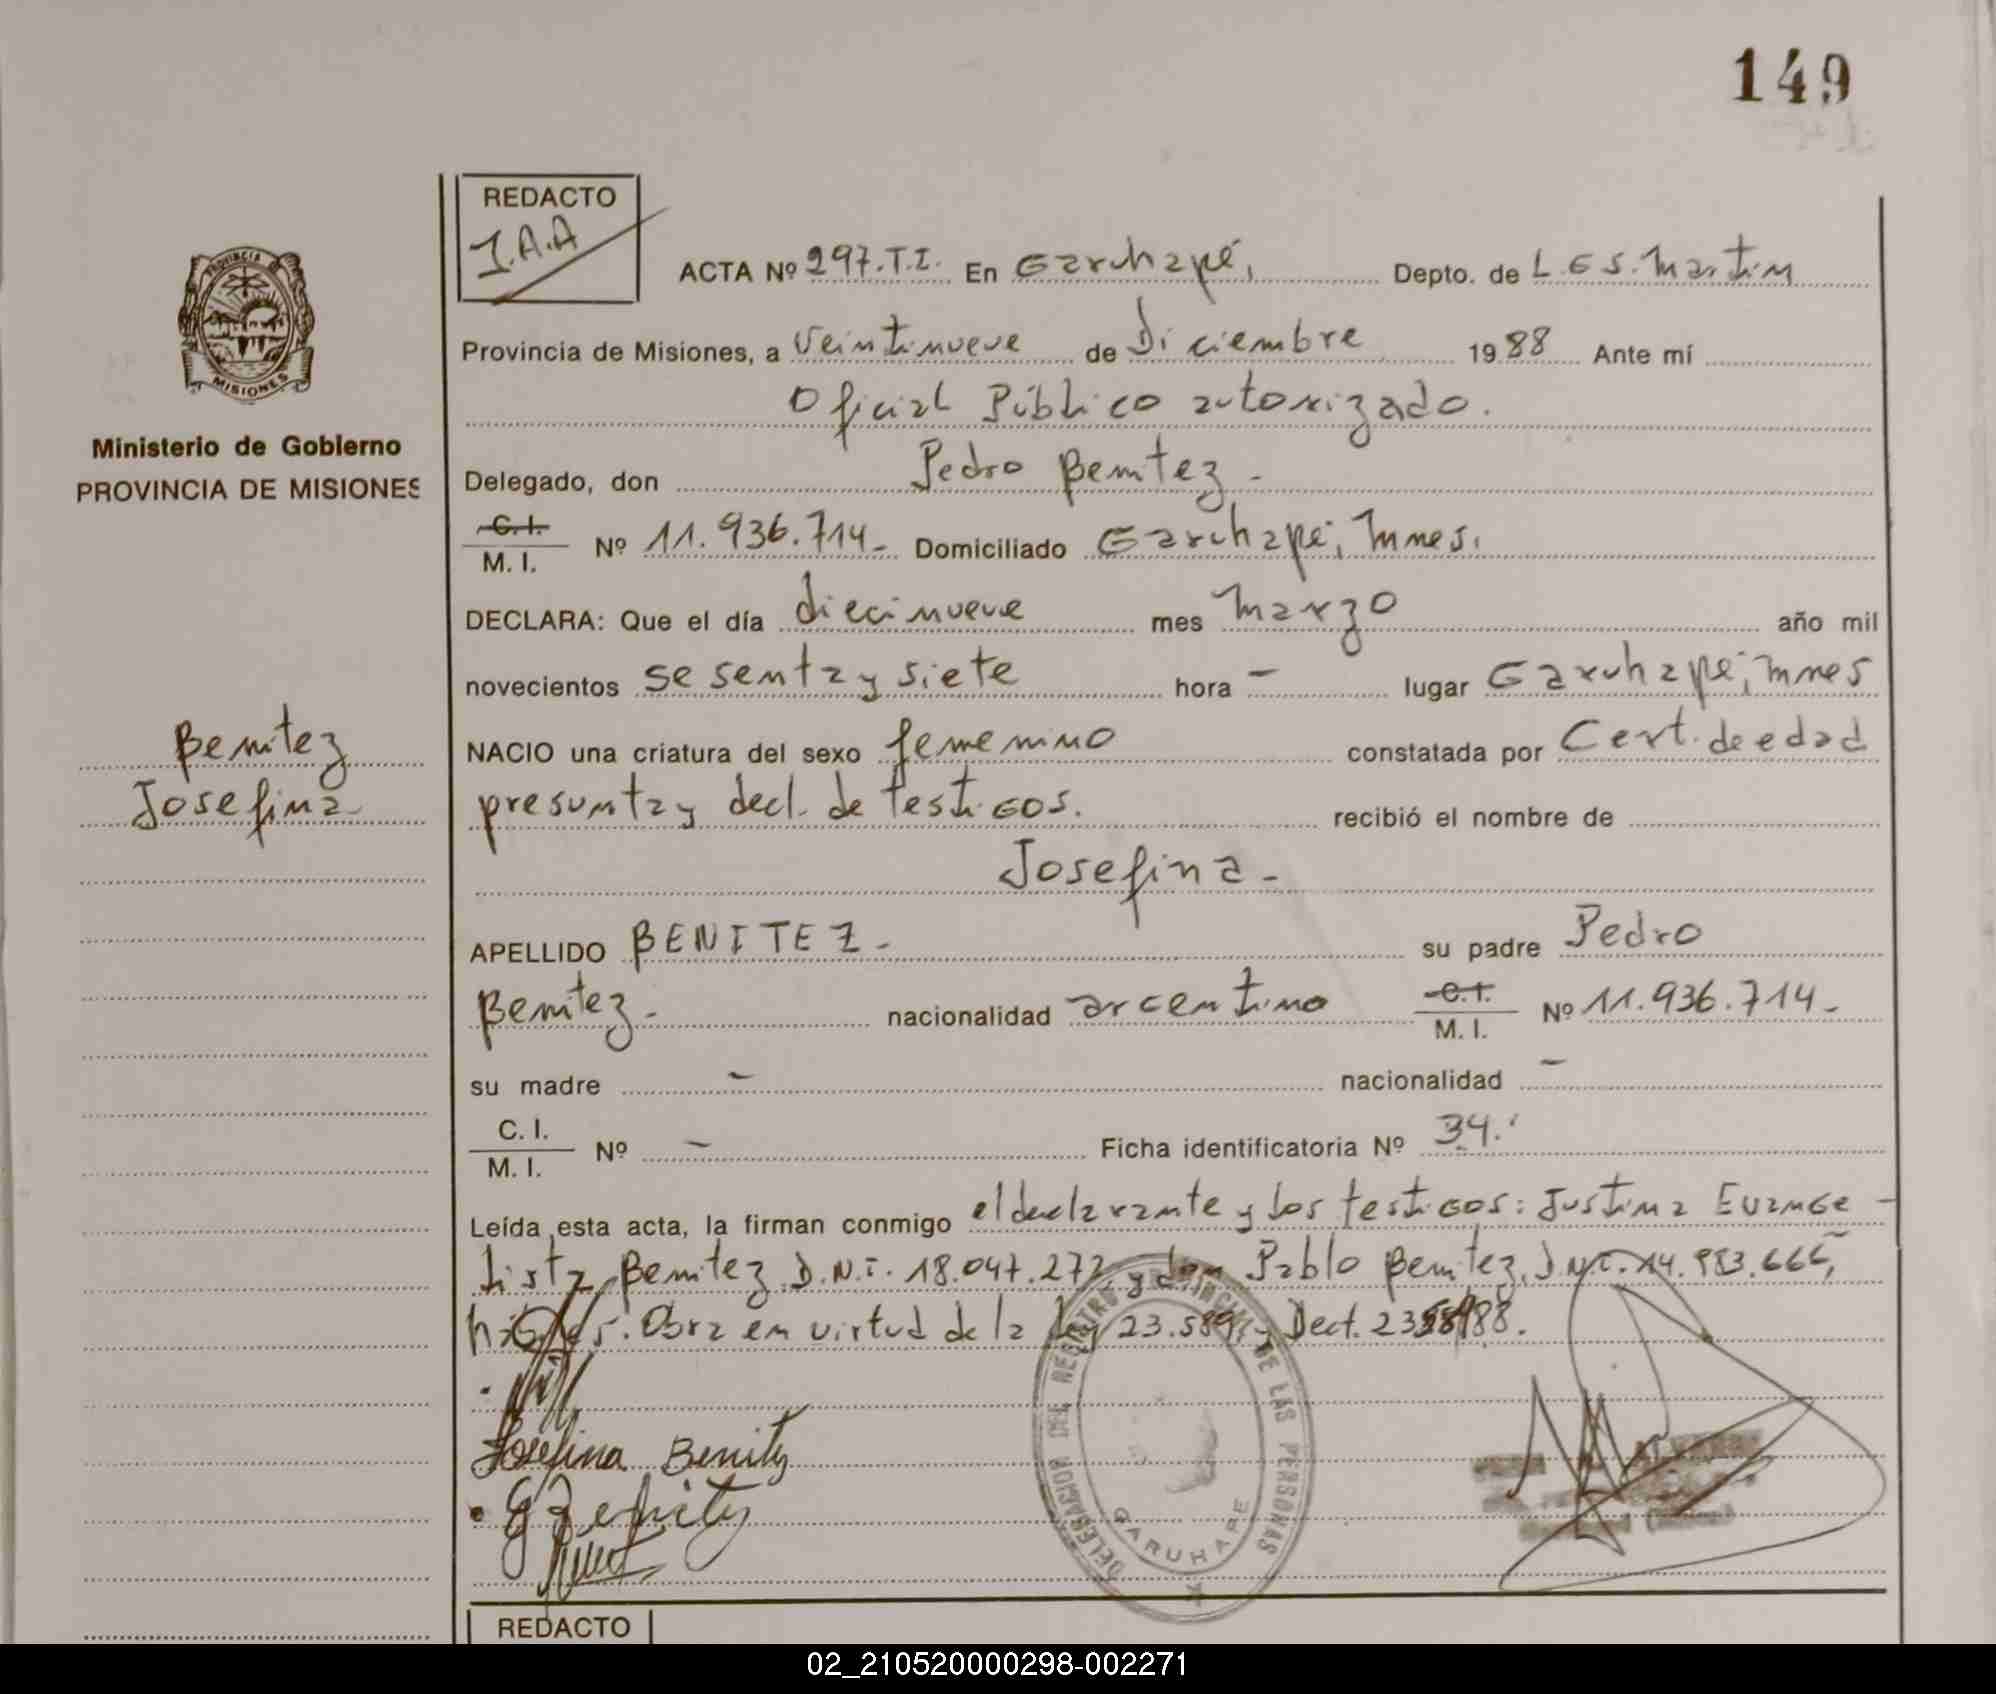 149
REDACTO
J.A.A
ACTA Nº 297.T.I. En Garuhapé, Depto. de L.G S. Martin
PROVINCIA DE
MISIONES
Provincia de Misiones, a Veintinueve de Diciembre 1988 Ante mí
Oficial Público autorizado.
Ministerio de Gobierno
PROVINCIA DE MISIONES
Delegado, don Pedro Benitez -
C.I.
M. I. Nº 11.936.714- Domiciliado Garuhapé; Mnes.
DECLARA: Que el día diecinueve mes Marzo año mil
novecientos sesenta y siete hora - lugar Garuhapé; Mnes
Benitez
Josefina
NACIO una criatura del sexo femenino constatada por Cert. de edad
presunta y decl. de testigos. recibió el nombre de
Josefina -
APELLIDO BENITEZ - su padre Pedro
Benitez - nacionalidad argentino C.I. M. I. Nº 11.936.714-
su madre - nacionalidad -
C. I.
M. I. Nº - Ficha identificatoria Nº 34.
Leída esta acta, la firman conmigo el declarante y los testigos: Justina Evange-
lista Benitez D.N.I. 18.047.272 y don Pablo Benitez, D.N.I. 14.983.666,
hábiles. Obra en virtud de la Ley 23.589 y Dect. 2358/88.
Josefina Benitez
DELEGACION DEL REGISTRO PROVINCIAL DE LAS PERSONAS
GARUHAPE
REDACTO
02_210520000298-002271